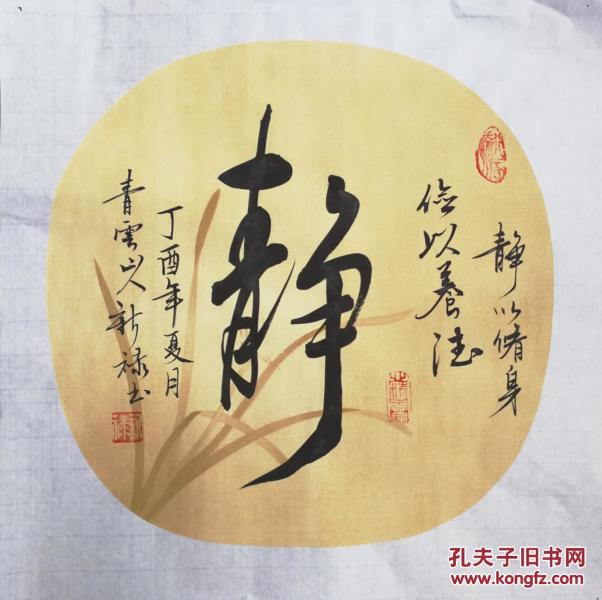 静以脩身
俭以养德
静
丁酉年夏月
青云山人新禄书
孔夫子旧书网
www.kongfz.com